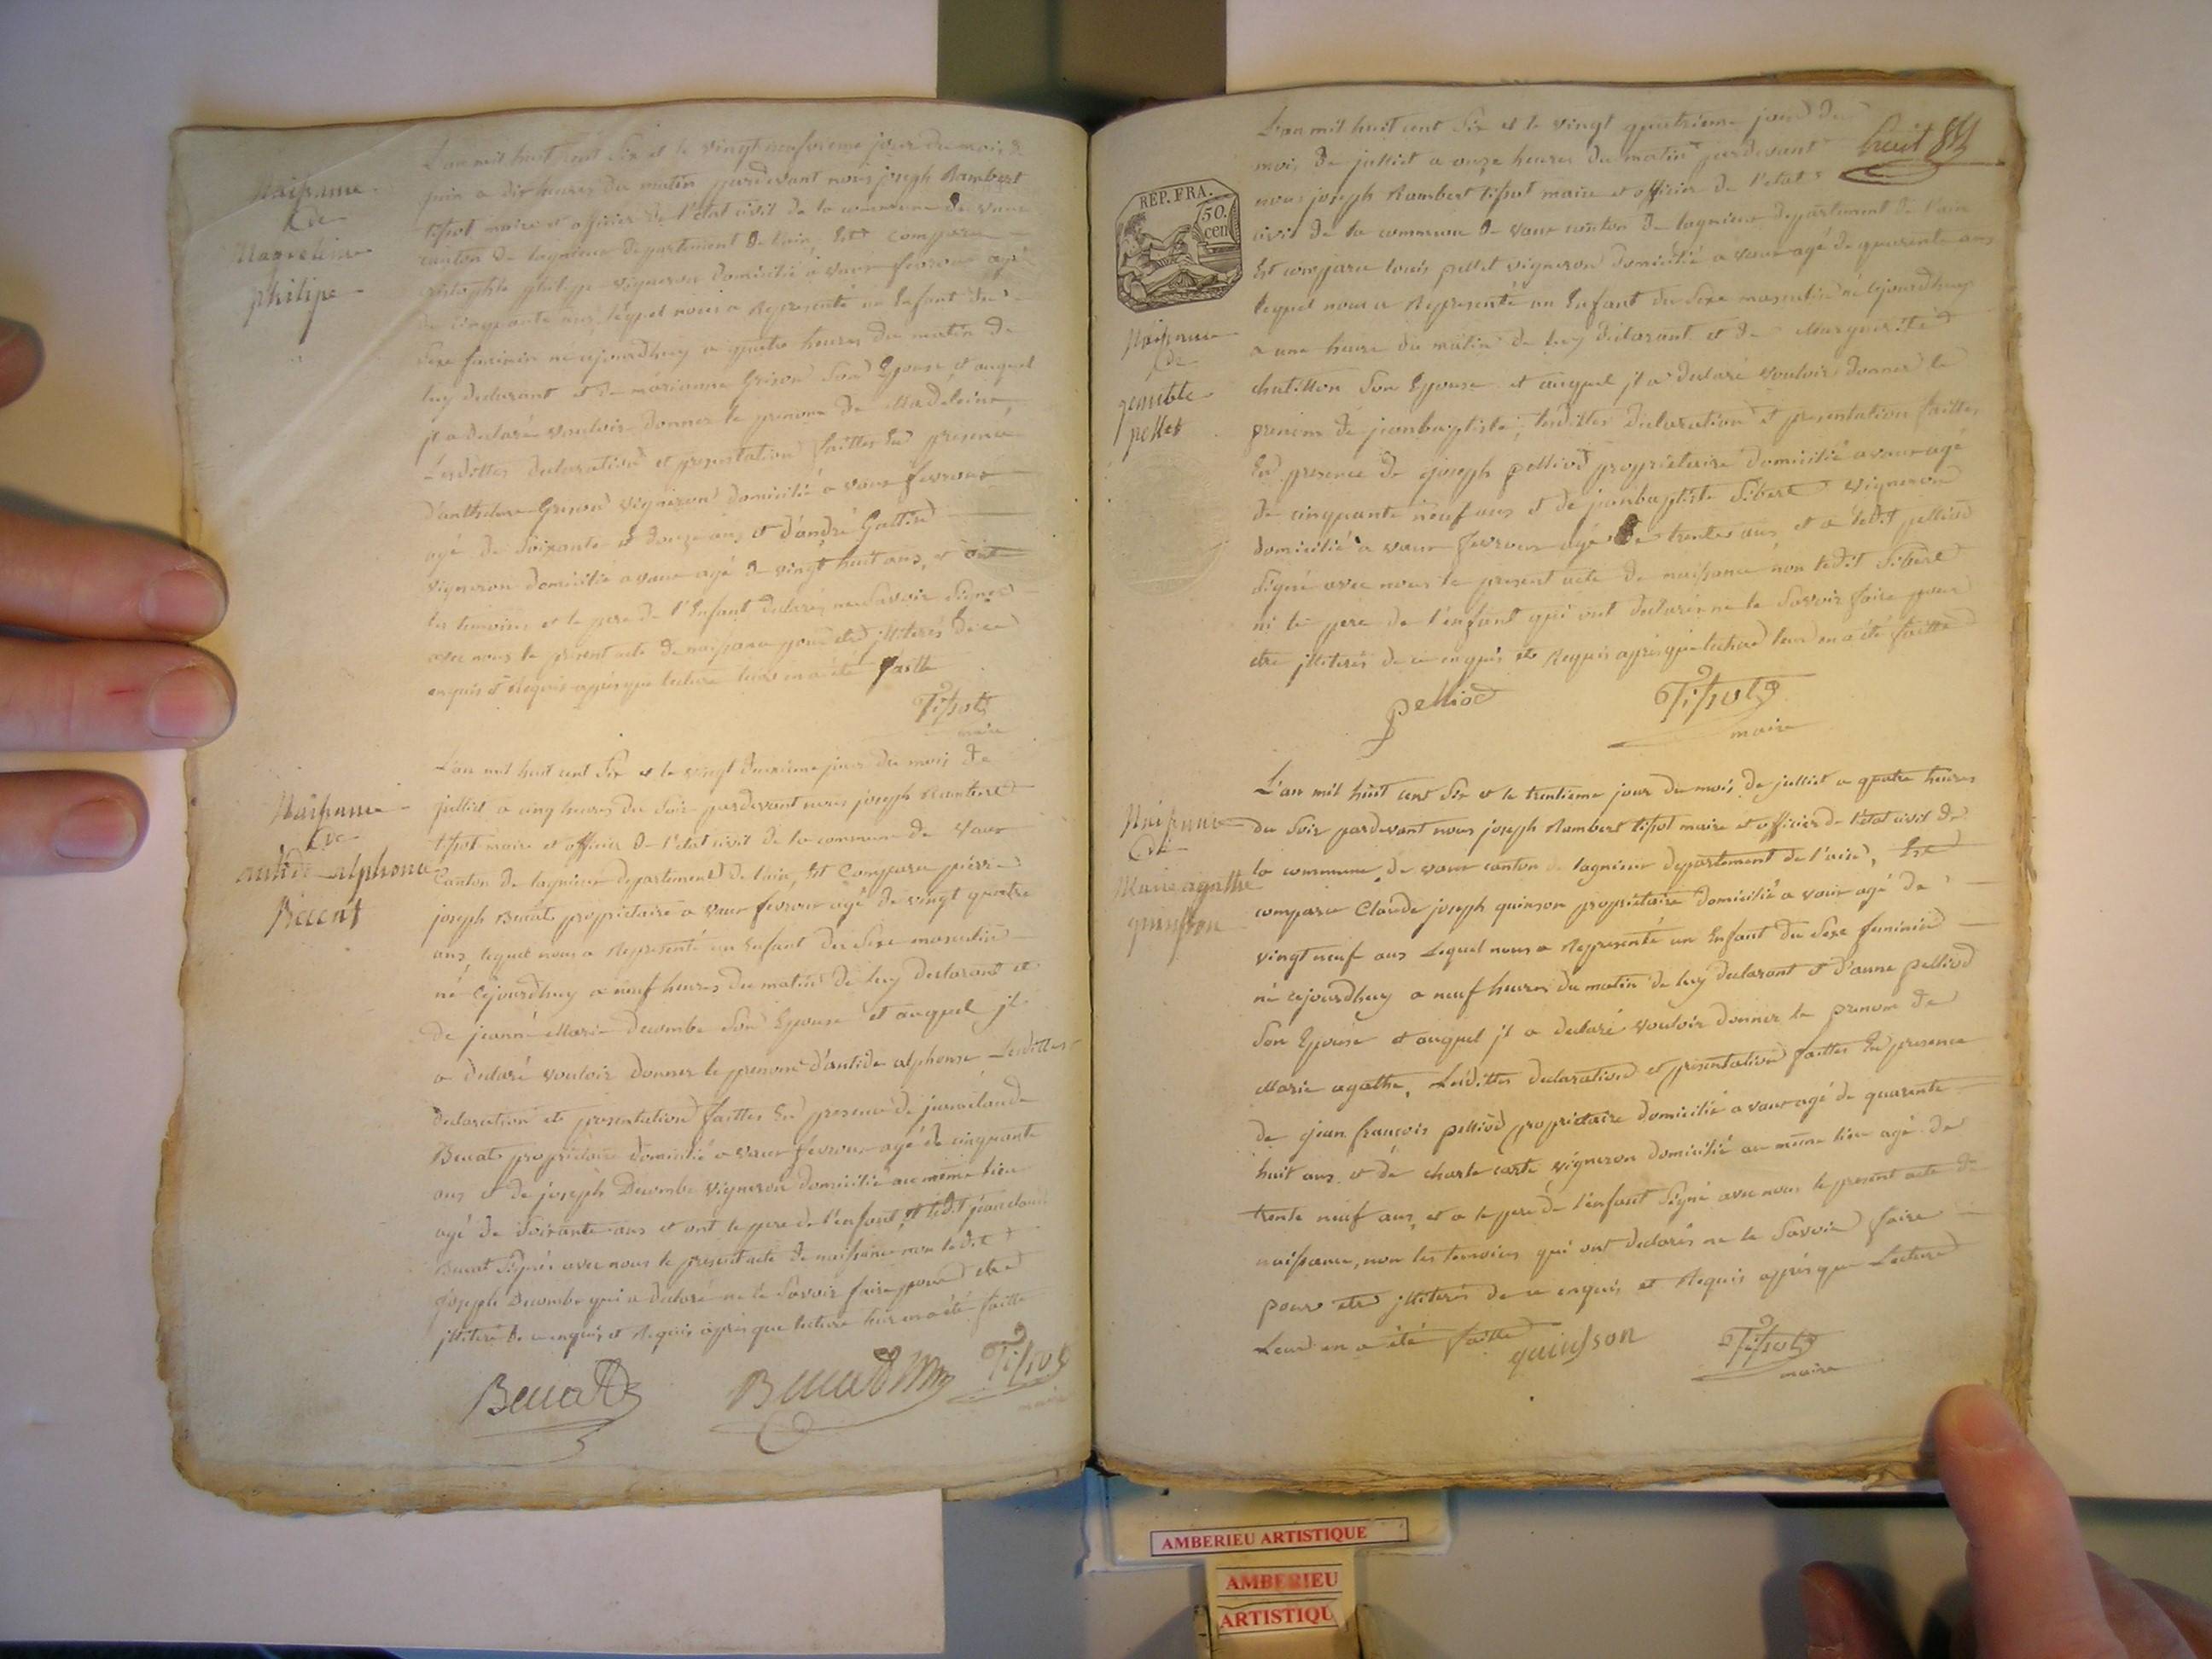 L'an mil huit cent Six et le vingt neufvieme jour du mois de
juin a dix heures du matin pardevant nous joseph Rambert
tissot maire et officier de l'état civil de la commune de vaux
canton de lagnieu departement de l'ain, Est comparu
philipe vigneron domicilié a vaux fevroux agé
de cinquante ans, lequel nous a Representé un Enfant du
Sexe feminin né cejourdhuy a quatre heures du matin de
luy declarant et de marianne Grison Son Epouse, et auquel
jl a declaré vouloir donner le prenom de Madeleine,
Lesdittes declaration et presentation faittes En presence
d'anthelme Grison vigneron domicilié a vaux fevroux
agé de Soixante et douze ans, et d'andré Gallin
vigneron domicilié a vaux agé de vingt huit ans, et ont
les temoins et le pere de l'Enfant declarés ne Savoir Signer
avec nous le présent acte de naissance pour etre jlliterés de ce
enquis et Requis apprès que lecture leur en a été faitte
Tissot
maire
Naissance
de
Madeleine
philipe
L'an mil huit cent Six et le vingt deuxieme jour du mois de
julliet a cinq heures du Soir pardevant nous joseph Rambert
tissot maire et officier de l'etat civil de la commune de vaux
Canton de lagnieu departement de l'ain, Est Comparu pierre
joseph Benat propriétaire a vaux fevroux agé de vingt quatre
ans, lequel nous a Representé un Enfant du Sexe masculin
né Cejourdhuy a neuf heures du matin de luy declarant et
de jeanne Marie Decombe Son Epouse et auquel jl
a declaré vouloir donner le prenom d'antide alphonse Lesdittes
declaration et presentation faittes En presence de jean claude
Benat propriétaire domicilié a vaux fevroux agé de cinquante
ans et de joseph Decombe vigneron domicilié au même lieu
agé de Soixante ans et ont le pere de l'enfant, et ledit jean claude
Benat Signés avec nous le present acte de naissance non ledit
joseph Decombe qui a declaré ne le Savoir faire pour etre
jlliteré de ce enquis, et Requis apprès que lecture leur en a été faitte
Benat Benat Tissot
maire
Naissance
de
antide alphonse
Benat
huit
L'an mil huit cent Six et le vingt quatrieme jour du
mois de julliet a onze heures du matin pardevant
nous joseph Rambert tissot maire et officier de l'etat
civil de la commune de vaux canton de lagnieu departement de l'ain
Est comparu louis pellet vigneron domicilié a vaux agé de quarente ans
lequel nous a Representé un Enfant du Sexe masculin né cejourdhuy
a une heure du matin de luy declarant et de Marguerite
chatillon Son Epouse et auquel jl a declaré vouloir donner le
prenom de jeanbaptiste, lesdittes declaration et presentation faittes
En presence de joseph pelliod propriétaire domicilié a vaux agé
de cinquante neuf ans et de jeanbaptiste Sibert vigneron
domicilié a vaux fevroux agé de trente ans, et a ledit pelliod
Signé avec nous le present acte de naissance non ledit Sibert
ni le pere de l'enfant qui ont declarés ne le Savoir faire pour
etre jlliterés de ce enquis et Requis apprès que lecture leur en a été faitte
pelliod Tissot
maire
REP. FRA.
50.
cen
Naissance
de
pellet
L'an mil huit cent Six et le trentieme jour du mois de julliet a quatre heures
du Soir pardevant nous joseph Rambert tissot maire et officier de l'état civil de
la commune de vaux canton de lagnieu departement de l'ain, Est
comparu Claude joseph quinson propriétaire domicilié a vaux agé de
vingt neuf ans Lequel nous a Representé un Enfant du Sexe feminin
né cejourdhuy a neuf heures du matin de luy declarant et d'anne pelliod
Son Epouse et auquel jl a declaré vouloir donner le prenom de
Marie agathe, Lesdittes declaration et presentation faittes En presence
de jean françois pelliod propriétaire domicilié a vaux agé de quarente
huit ans, et de charle carte vigneron domicilié au même lieu agé de
trente neuf ans, et a le pere de l'enfant Signé avec nous le present acte de
naissance, non les temoins qui ont declarés ne le Savoir faire
pour etre jlliterés de ce enquis, et Requis apprès que Lecture
Leur en a été faitte
quinson Tissot
maire
Naissance
de
Marie agathe
quinsson
AMBERIEU ARTISTIQUE
AMBERIEU
ARTISTIQU